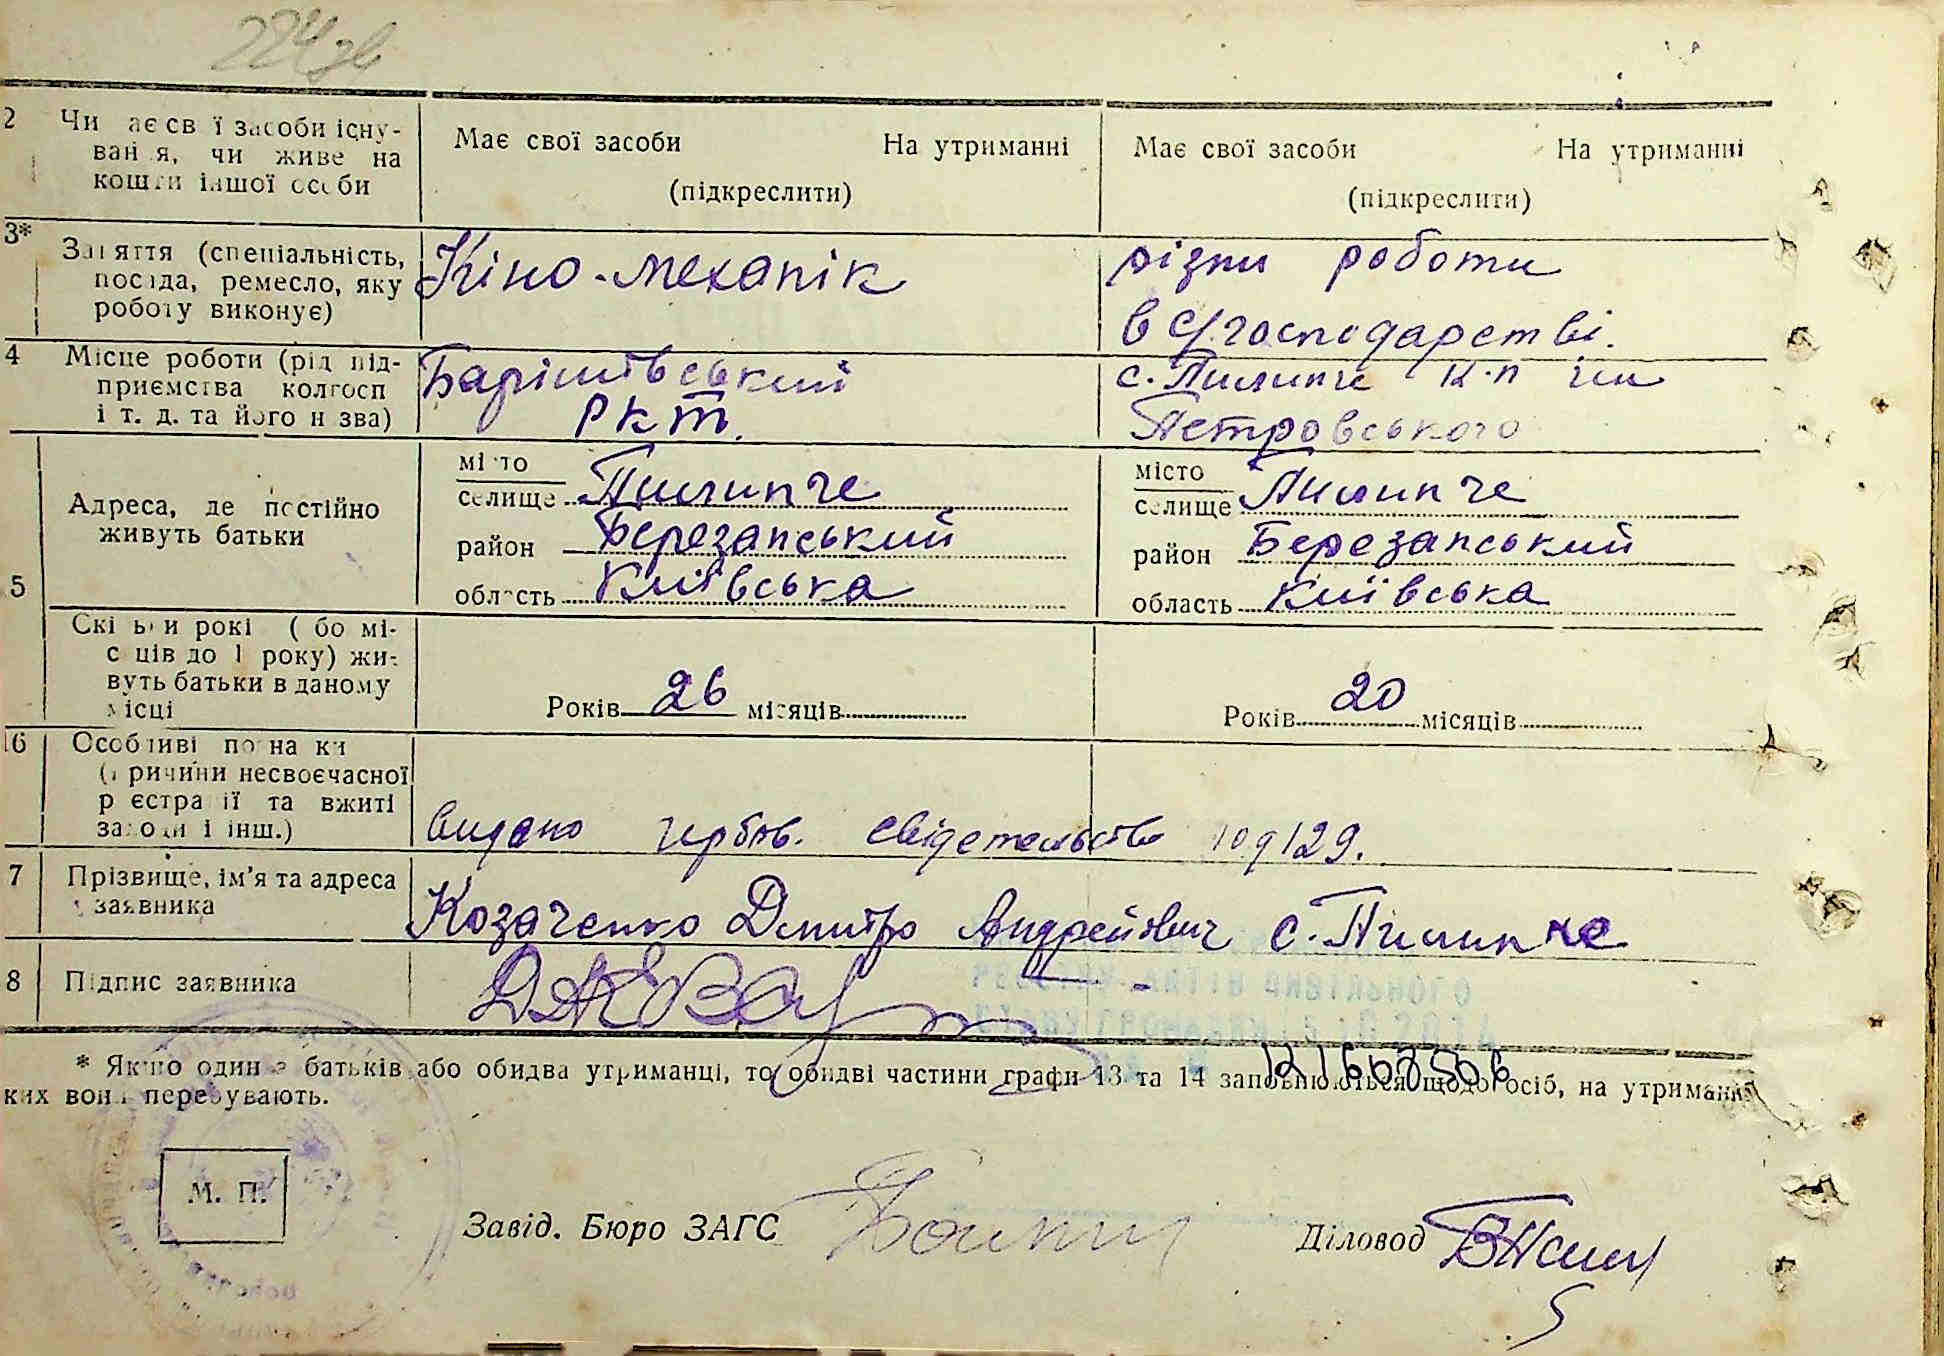 2 Чи ає св ї засоби існу-
ван я, чи живе на
кошти іншої особи
Має свої засоби На утриманні
(підкреслити)
Має свої засоби На утриманні
(підкреслити)
3* Заняття (спеціальність,
посада, ремесло, яку
роботу виконує)
Кіно-механік
різни роботи
в с/господарстві.
4 Місце роботи (рід під-
приємства колгосп
і т. д. та його н зва)
Барішівський
РКТ.
с. Пилипче к-п ім
Петровського
5
Адреса, де постійно
живуть батьки
місто
селище Пилипче
район Березанський
область Київська
місто
селище Пилипче
район Березанський
область Київська
Скі ьки рокі ( бо мі-
с ців до 1 року) жи-
вуть батьки в даному
місці
Років 26 місяців
Років 20 місяців
16 Особливі по на ки
(причини несвоєчасної
р єстра ії та вжиті
заходи і інш.)
видано гербов. свідетельство
7 Прізвище, ім'я та адреса
заявника
Козаченко Дмитро Андрейович с. Пилипче
8 Підпис заявника
РЕЄСТРУ АКТІВ ЦИВІЛЬНОГО
СТАНУ ГРОМАДЯН
* Якщо один з батьків або обидва утриманці, то обидві частини графи 13 та 14 заповнюються щодо осіб, на утриманні
ких вони перебувають.
М. П.
Завід. Бюро ЗАГС
Діловод